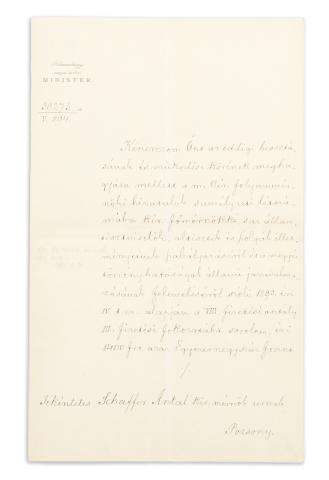 Földmívelésügyi
magyar királyi
MINISTER
38273 sz.
V. 1894.
Kinevezem Önt az eddigi beosztá-
sának és működési körének megha-
gyása mellett a m. kir. folyammér-
nöki hivatalok személyzeti létszá-
mába kir. főmérnökké, s az állami
tisztviselők, altisztek és szolgák illet-
ményeinek szabályozásáról és a megyei
törvényhatóságok állami javadalma-
zásának felemeléséről szóló 1893. évi
IV. t.cz. alapján a VIII fizetési osztály
III. fizetési fokozatába sorolom, évi
frt azaz Egyezernégyszáz forint
./.
Tekintetes Schaffer Antal kir. mérnök urnak
Pozsony.